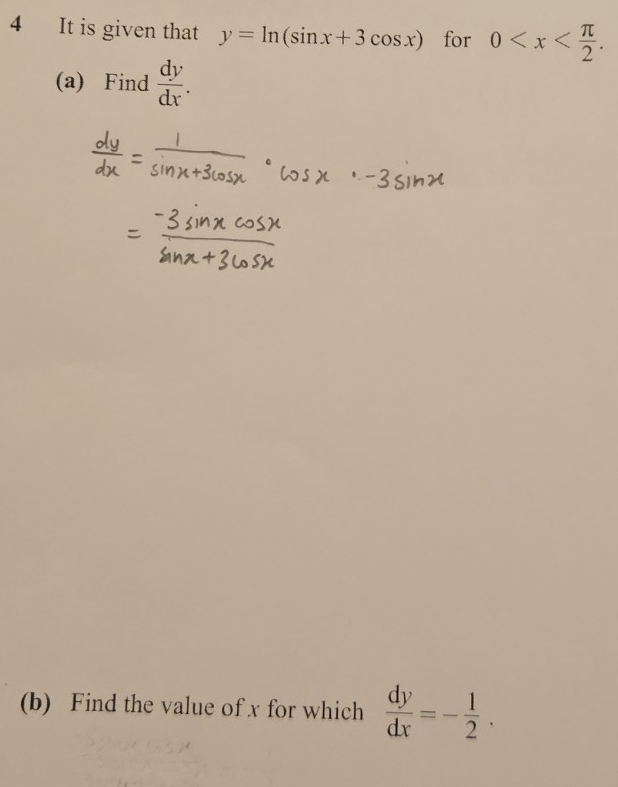 4 It is given that y = ln(sin x + 3 cos x) for 0 < x < π/2.
(a) Find dy/dx.
dy/dx = 1/(sinx+3cosx) · cosx · -3sinx
= (-3 sinx cosx)/(sinx+3cosx)
(b) Find the value of x for which dy/dx = -1/2.